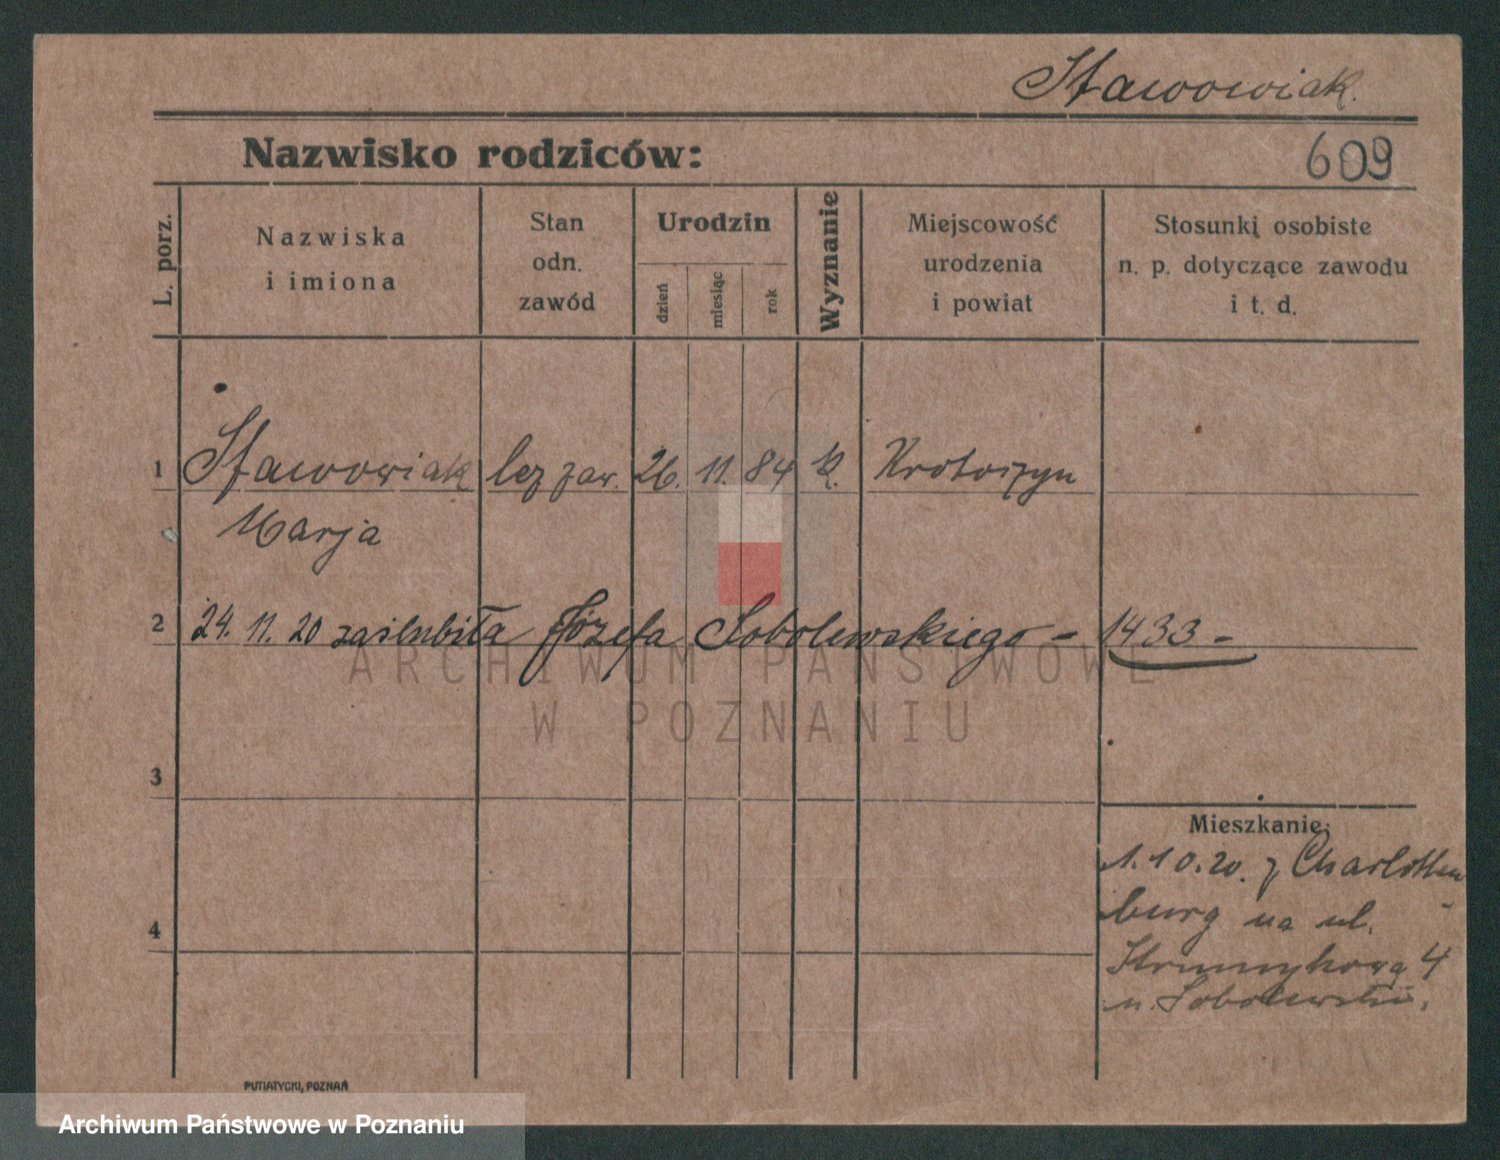 Stawowiak.
Nazwisko rodziców:
609
L. porz.
Nazwiska
i imiona
Stan
odn.
zawód
Urodzin
dzień
miesiąc
rok
Wyznanie
Miejscowość
urodzenia
i powiat
Stosunki osobiste
n. p. dotyczące zawodu
i t. d.
1 Stawowiak bez zaw. 26. 11. 84 k. Krotoszyn
Marja
2 24. 11. 20 zaślubiła Józefa Sobolewskiego - 1433 -
ARCHIWUM PAŃSTWOWE
W POZNANIU
3
Mieszkanie:
1.10.20. z Charlotten
burg na ul.
4
4
u. Sobolewski.
PUTIATYCKI, POZNAŃ
Archiwum Państwowe w Poznaniu